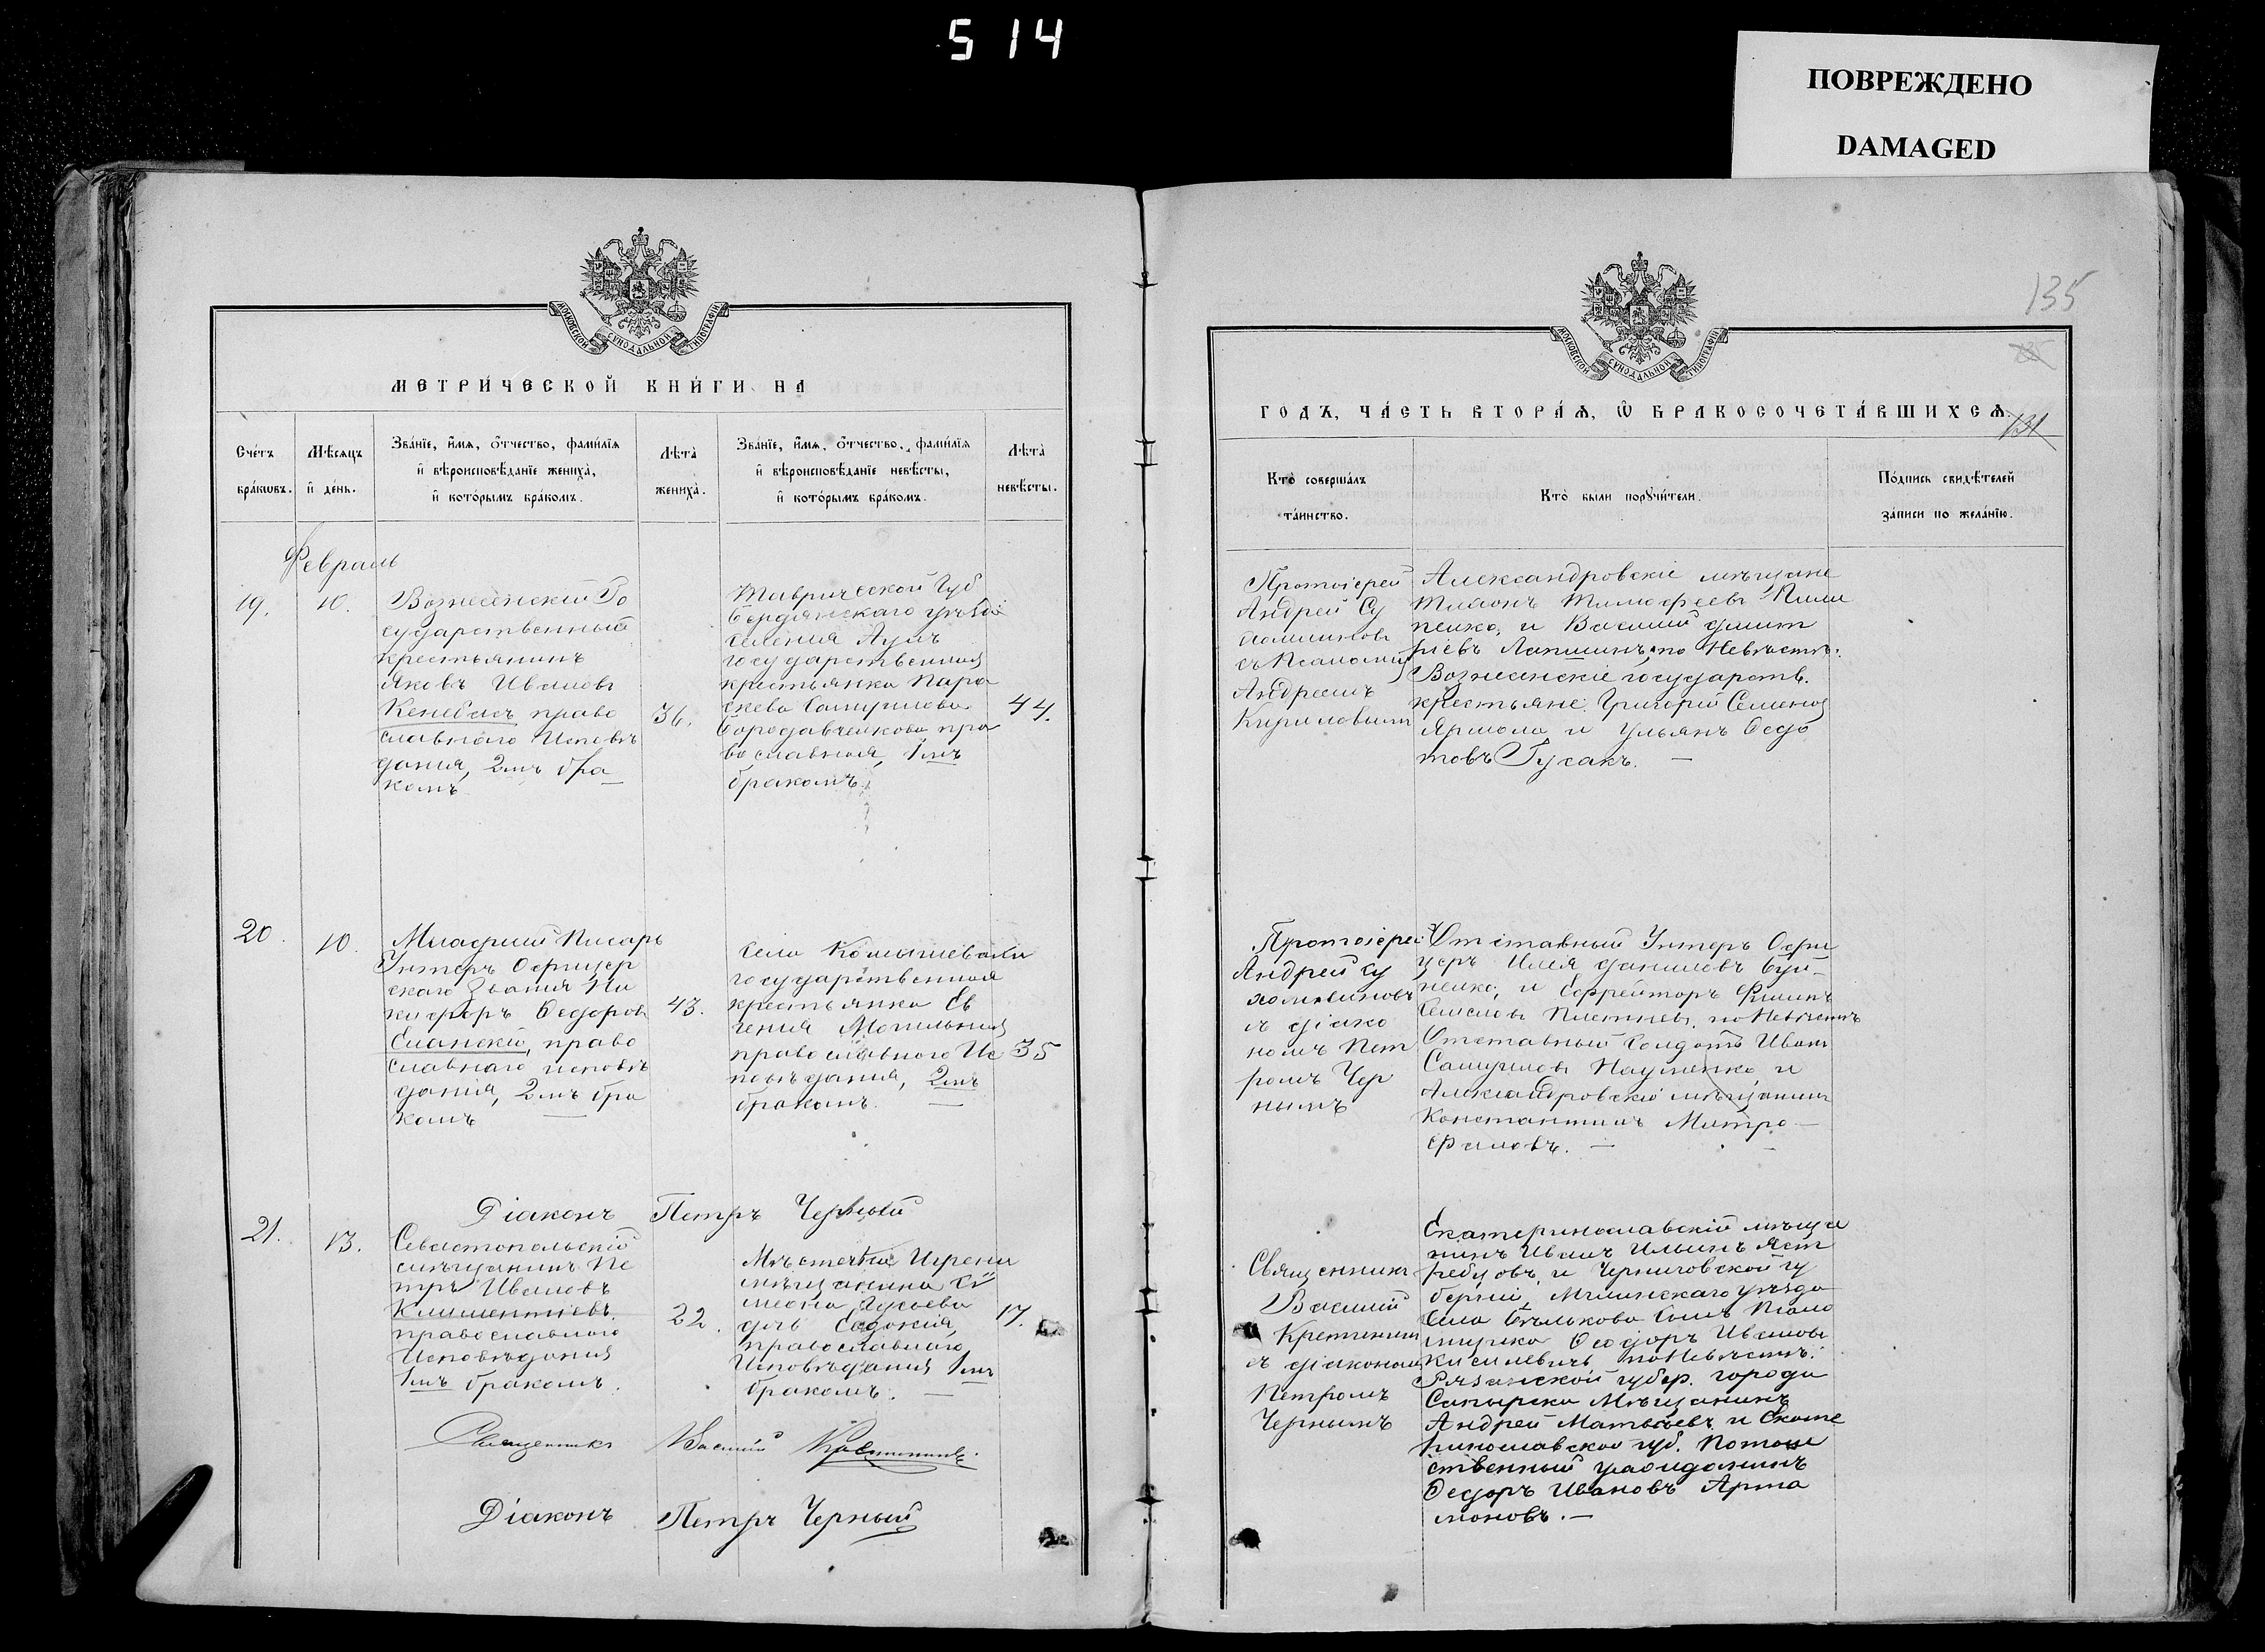 514
ПОВРЕЖДЕНО
DAMAGED
МОСКОВСКОЙ СУНОДАЛЬНОЙ ТИПОГРАФІИ
МЕТРИ́ЧЕСКОЙ КНИ́ГИ НА
Сче́тъ
бра́кѡвъ.
Мѣ́сяцъ
и҆ де́нь.
Зва́нїе, и҆́мѧ, ѻ҆́тчество, фами́лїѧ
и҆ вѣроисповѣ́данїе жениха̀,
и҆ кото́рымъ бра́комъ.
Лѣ́та
жениха̀.
Зва́нїе, и҆́мѧ, ѻ҆́тчество, фами́лїѧ
и҆ вѣроисповѣ́данїе невѣ́сты,
и҆ кото́рымъ бра́комъ.
Лѣ́та
невѣ́сты.
Февраль
19.
10.
Вознесенскій Го
сударственный
крестьянинъ
Яковъ Ивановъ
Кенебасъ право
славнаго Исповѣ
данія, 2мъ бра
комъ
36.
Таврической Губ
Бердянскаго уѣзда
селенія
государственная
крестьянка Пара
скева Самуилова
Бородавченкова пра
вославная, 1мъ
бракомъ.
44.
20.
10.
Младшій Писарь
Унтеръ Офицер
скаго Званія Ни
кифоръ Ѳедоровъ
Еланскій, право
славнаго исповѣ
данія, 2мъ бра
комъ
43.
села Комышевахи
государственная
крестьянка Ев
генія Могильная
православнаго Ис
повѣданія, 2мъ
бракомъ.
35
Діаконъ Петръ Черный
21.
13.
Севастопольскій
мѣщанинъ Пе
тръ Ивановъ
Климентіевъ
православнаго
Исповѣданія
1мъ бракомъ.
22.
Мѣстечка Игрени
мѣщанина Си
меона Гусоева
дочь Евдокія,
православнаго
Исповѣданія 1мъ
бракомъ.
17.
Священникъ Василій
Діаконъ Петръ Черный
МОСКОВСКОЙ СУНОДАЛЬНОЙ ТИПОГРАФІИ
135
131
ГОДЪ, ЧА́СТЬ ВТОРА́Ѧ, Ѽ БРАКОСОЧЕТА́ВШИХСѦ.
Кто̀ соверша́лъ
та́инство.
Кто̀ были порꙋчи́тели.
По́дпись свидѣ́телей
за́писи по жела́нїю.
Протоіерей
Андрей Су
хомлиновъ
съ Псаломщ
Андреемъ
Кириловымъ
Александровскіе мѣщане
Тихонъ Тимофеевъ Пили
пенко, и Василій Димит
ріевъ Лапшинъ; по Невѣстѣ:
Вознесенскіе государств.
крестьяне Григорій Семеновъ
Ярмола и Ульянъ Ѳедо
товъ Гусакъ. —
Протоіерей
Андрей Су
хомлиновъ
съ діако
номъ Пет
ромъ Чер
нымъ
Отставный Унтеръ Офи
церъ Илья Даниловъ Буй-
ненко, и Ефрейторъ Филипъ
Плетнев. по Невѣстѣ
Отставный Солдатъ Иванъ
Самуиловъ Науменко и
Александровскій мѣщанинъ
Константинъ Митро-
фановъ. —
Священникъ
Василій
Кретининъ
съ діакономъ
Петромъ
Чернымъ
Екатеринославскій мѣща
нинъ Иванъ Ильинъ Яст
ребцовъ, и Черниговской гу
берніи, Мглинскаго уѣзда
села Бѣлькова сынъ Псало
мщика Ѳеодоръ Ивановъ
Кисилевичъ по Невѣстѣ:
Рязанской губер. города
Сапожка Мѣщанинъ
Андрей Матвѣевъ и Екате
ринославской губ. Потом
ственный гражданинъ
Ѳедоръ Ивановъ Арта
моновъ. —